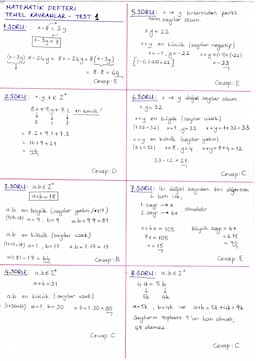 MATEMATİK DEFTERİ
TEMEL KAVRAMLAR - TEST 1
1.SORU: x-8=3y
x-3y=8
(x-3y).x-24y = 8x-24y = 8(x-3y)
= 8.8 = 64
Cevap: E
2.SORU: x,y,z ∈ Z⁺
8x+9y+3.z en küçük?
= 8.2+9.1+7.3
= 16+9+21
= 46
Cevap: D
3.SORU: a,b ∈ Z⁺
a+b=18
a.b en büyük (sayılar yakın)
a=9, b=9 a.b=9.9=81
a.b en küçük (sayılar uzak)
(1+17=18) a=1, b=17 a.b=1.17=17
=> 81-17=64
Cevap: B
4.SORU: a,b ∈ Z⁺
a+b=31
a.b en küçük (sayılar uzak)
(1+30=31) a=1, b=30 a.b=1.30=30
Cevap: C
5.SORU: x ve y birbirinden farklı
tam sayılar olsun
x.y=22
x+y en küçük (sayılar negatif)
x=-1, y=-22 x+y=-1+(-22)
[-1.(-22)=22] =-23
Cevap: E
6.SORU: x ve y doğal sayılar olsun
x.y=32
x+y en büyük (sayılar uzak)
(1.32=32) x=1, y=32 x+y=1+32=33
x+y en küçük (sayılar yakın)
(8.4=32) x=8, y=4 x+y=8+4=12
33-12=21
Cevap: C
7.SORU: İki doğal sayıdan biri diğerinin
6 katı ise,
1. sayı → x
2. sayı → 6x olmalıdır
x+6x=105
7x=105
x=15
Büyük sayı=6x
=6.15
=90
Cevap: E
8.SORU: a,b ∈ Z⁺
4a=5b
5k 4k
a=5k, b=4k ise a+b=5k+4k=9k
Sayıların toplamı 9'un katı olmalı,
49 olamaz
Cevap: C